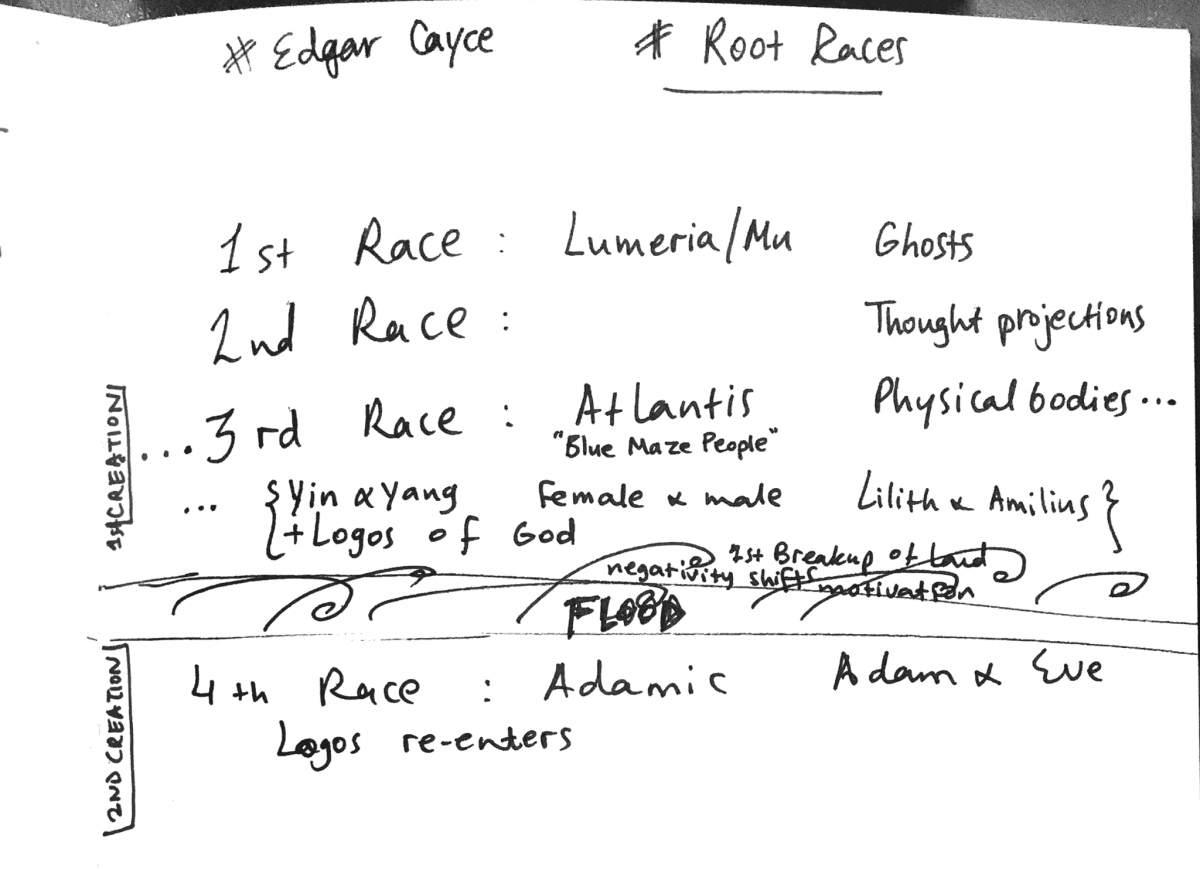 # Edgar Cayce # Root Races
1st Race : Lumeria/Mu Ghosts
2nd Race : Thought projections
1st CREATION
...3rd Race : Atlantis Physical bodies...
"Blue Maze People"
... {Yin & Yang Female & male Lilith & Amilius}
+ Logos of God
1st Breakup of land
negativity shifts motivation
FLOOD
2ND CREATION
4th Race : Adamic Adam & Eve
Logos re-enters